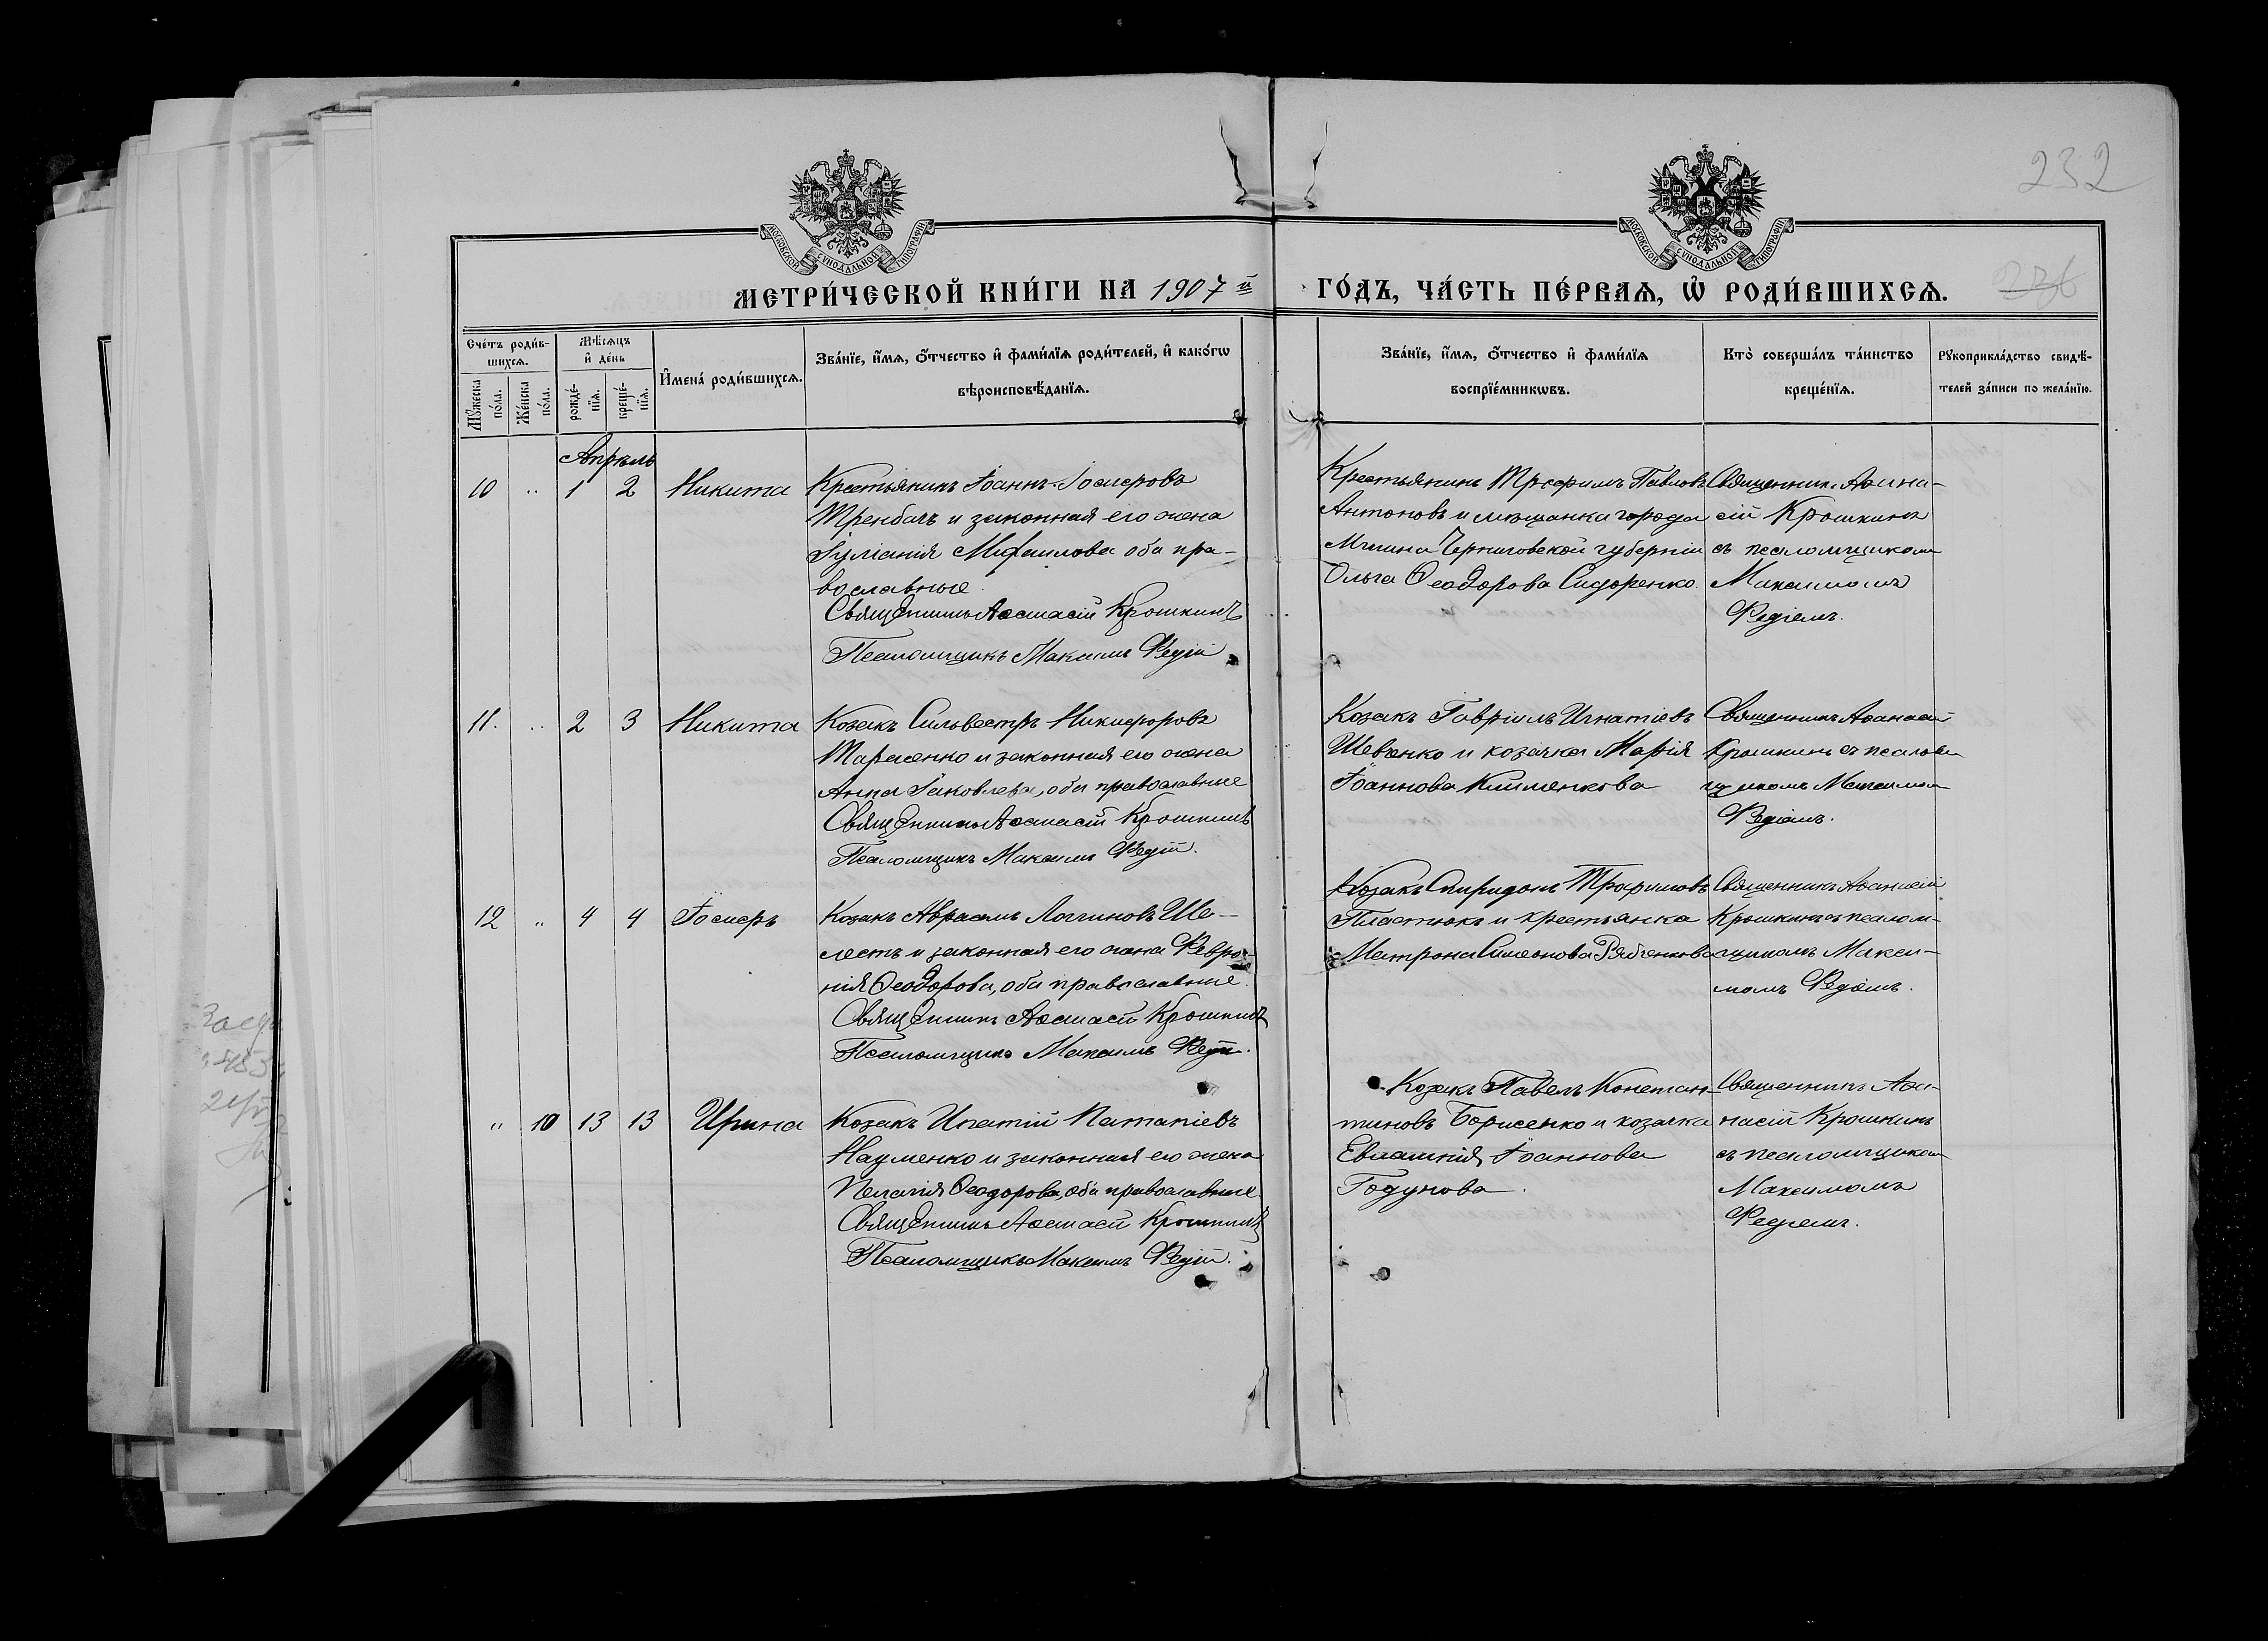 232
МОСКОВСКОЙ СѴНОДАЛЬНОЙ ТИПОГРАФІИ
МОСКОВСКОЙ СѴНОДАЛЬНОЙ ТИПОГРАФІИ
МЕТРИ́ЧЕСКОЙ КНИ́ГИ НА 1907й
ГО́ДЪ, ЧА́СТЬ ПЕ́РВАѦ, Ѽ РОДИ́ВШИХСѦ.
236
Сче́тъ роди́в-
шихсѧ.
Мѣ́сѧцъ
и҆ де́нь
Мꙋ́жеска
по́ла.
Же́нска
по́ла.
рожде́-
нїѧ.
креще́-
нїѧ.
И҆мена́ роди́вшихсѧ.
Зва́нїе, и҆́мѧ, ѻ҆́тчество и҆ фами́лїѧ роди́телей, и҆ како́гѡ
вѣроисповѣ́данїѧ.
Зва́нїе, и҆́мѧ, ѻ҆́тчество и҆ фами́лїѧ
воспрїе́мникѡвъ.
Кто̀ соверша́лъ та́инство
креще́нїѧ.
Рꙋкоприкла́дство свидѣ́-
телей за́писи по жела́нїю.
Апрѣль
10 " 1 2 Никита
Крестьянинъ Іоаннъ Іосифовъ
Тренбачъ и законная его жена
Іуліанія Михаилова оба пра-
вославные.
Священникъ Аѳанасій Крошкинъ
Псаломщикъ Максимъ Редій
Крестьянинъ Трофимъ Павловъ
Антоновъ и мѣщанка города
Мглина Черниговской губерніи
Ольга Ѳеодорова Сидоренко.
Священникъ Аѳана-
сій Крошкинъ
съ псаломщикомъ
Максимомъ
Редіемъ.
11. " 2 3 Никита
Козакъ Сильвестръ Никифоровъ
Тарасенко и законная его жена
Анна Іаковлева, оба православные
Священникъ Аѳанасій Крошкинъ
Псаломщикъ Максимъ Редій.
Козакъ Гавріилъ Игнатіевъ
Шевченко и козачка Марія
Іоаннова Клименкова
Священникъ Аѳанасій
Крошкинъ съ псалом
щикомъ Максимом
Редіемъ.
12 " 4 4 Іосифъ
Козакъ Авраамъ Логгиновъ Ше-
лестъ и законная его жена Февро-
нія Ѳеодорова, оба православные.
Священникъ Аѳанасій Крошкинъ
Псаломщикъ Максимъ Редій.
Козакъ Спиридонъ Трофимовъ
Пластюкъ и крестьянка
Матрона Симеонова Рябченкова
Священникъ Аѳанасій
Крошкинъ съ псалом-
щикомъ Макси-
момъ Редіемъ.
" 10 13 13 Ирина
Козакъ Ипатій Патапіевъ
Науменко и законная его жена
Пелагія Ѳеодорова, оба православные
Священникъ Аѳанасій Крошкинъ
Псаломщикъ Максимъ Редій.
Козакъ Павелъ Констан-
тиновъ Борисенко и козачка
Евлампія Іоаннова
Годунова.
Священникъ Аѳа-
насій Крошкинъ
съ псаломщиком
Максимомъ
Редіемъ.